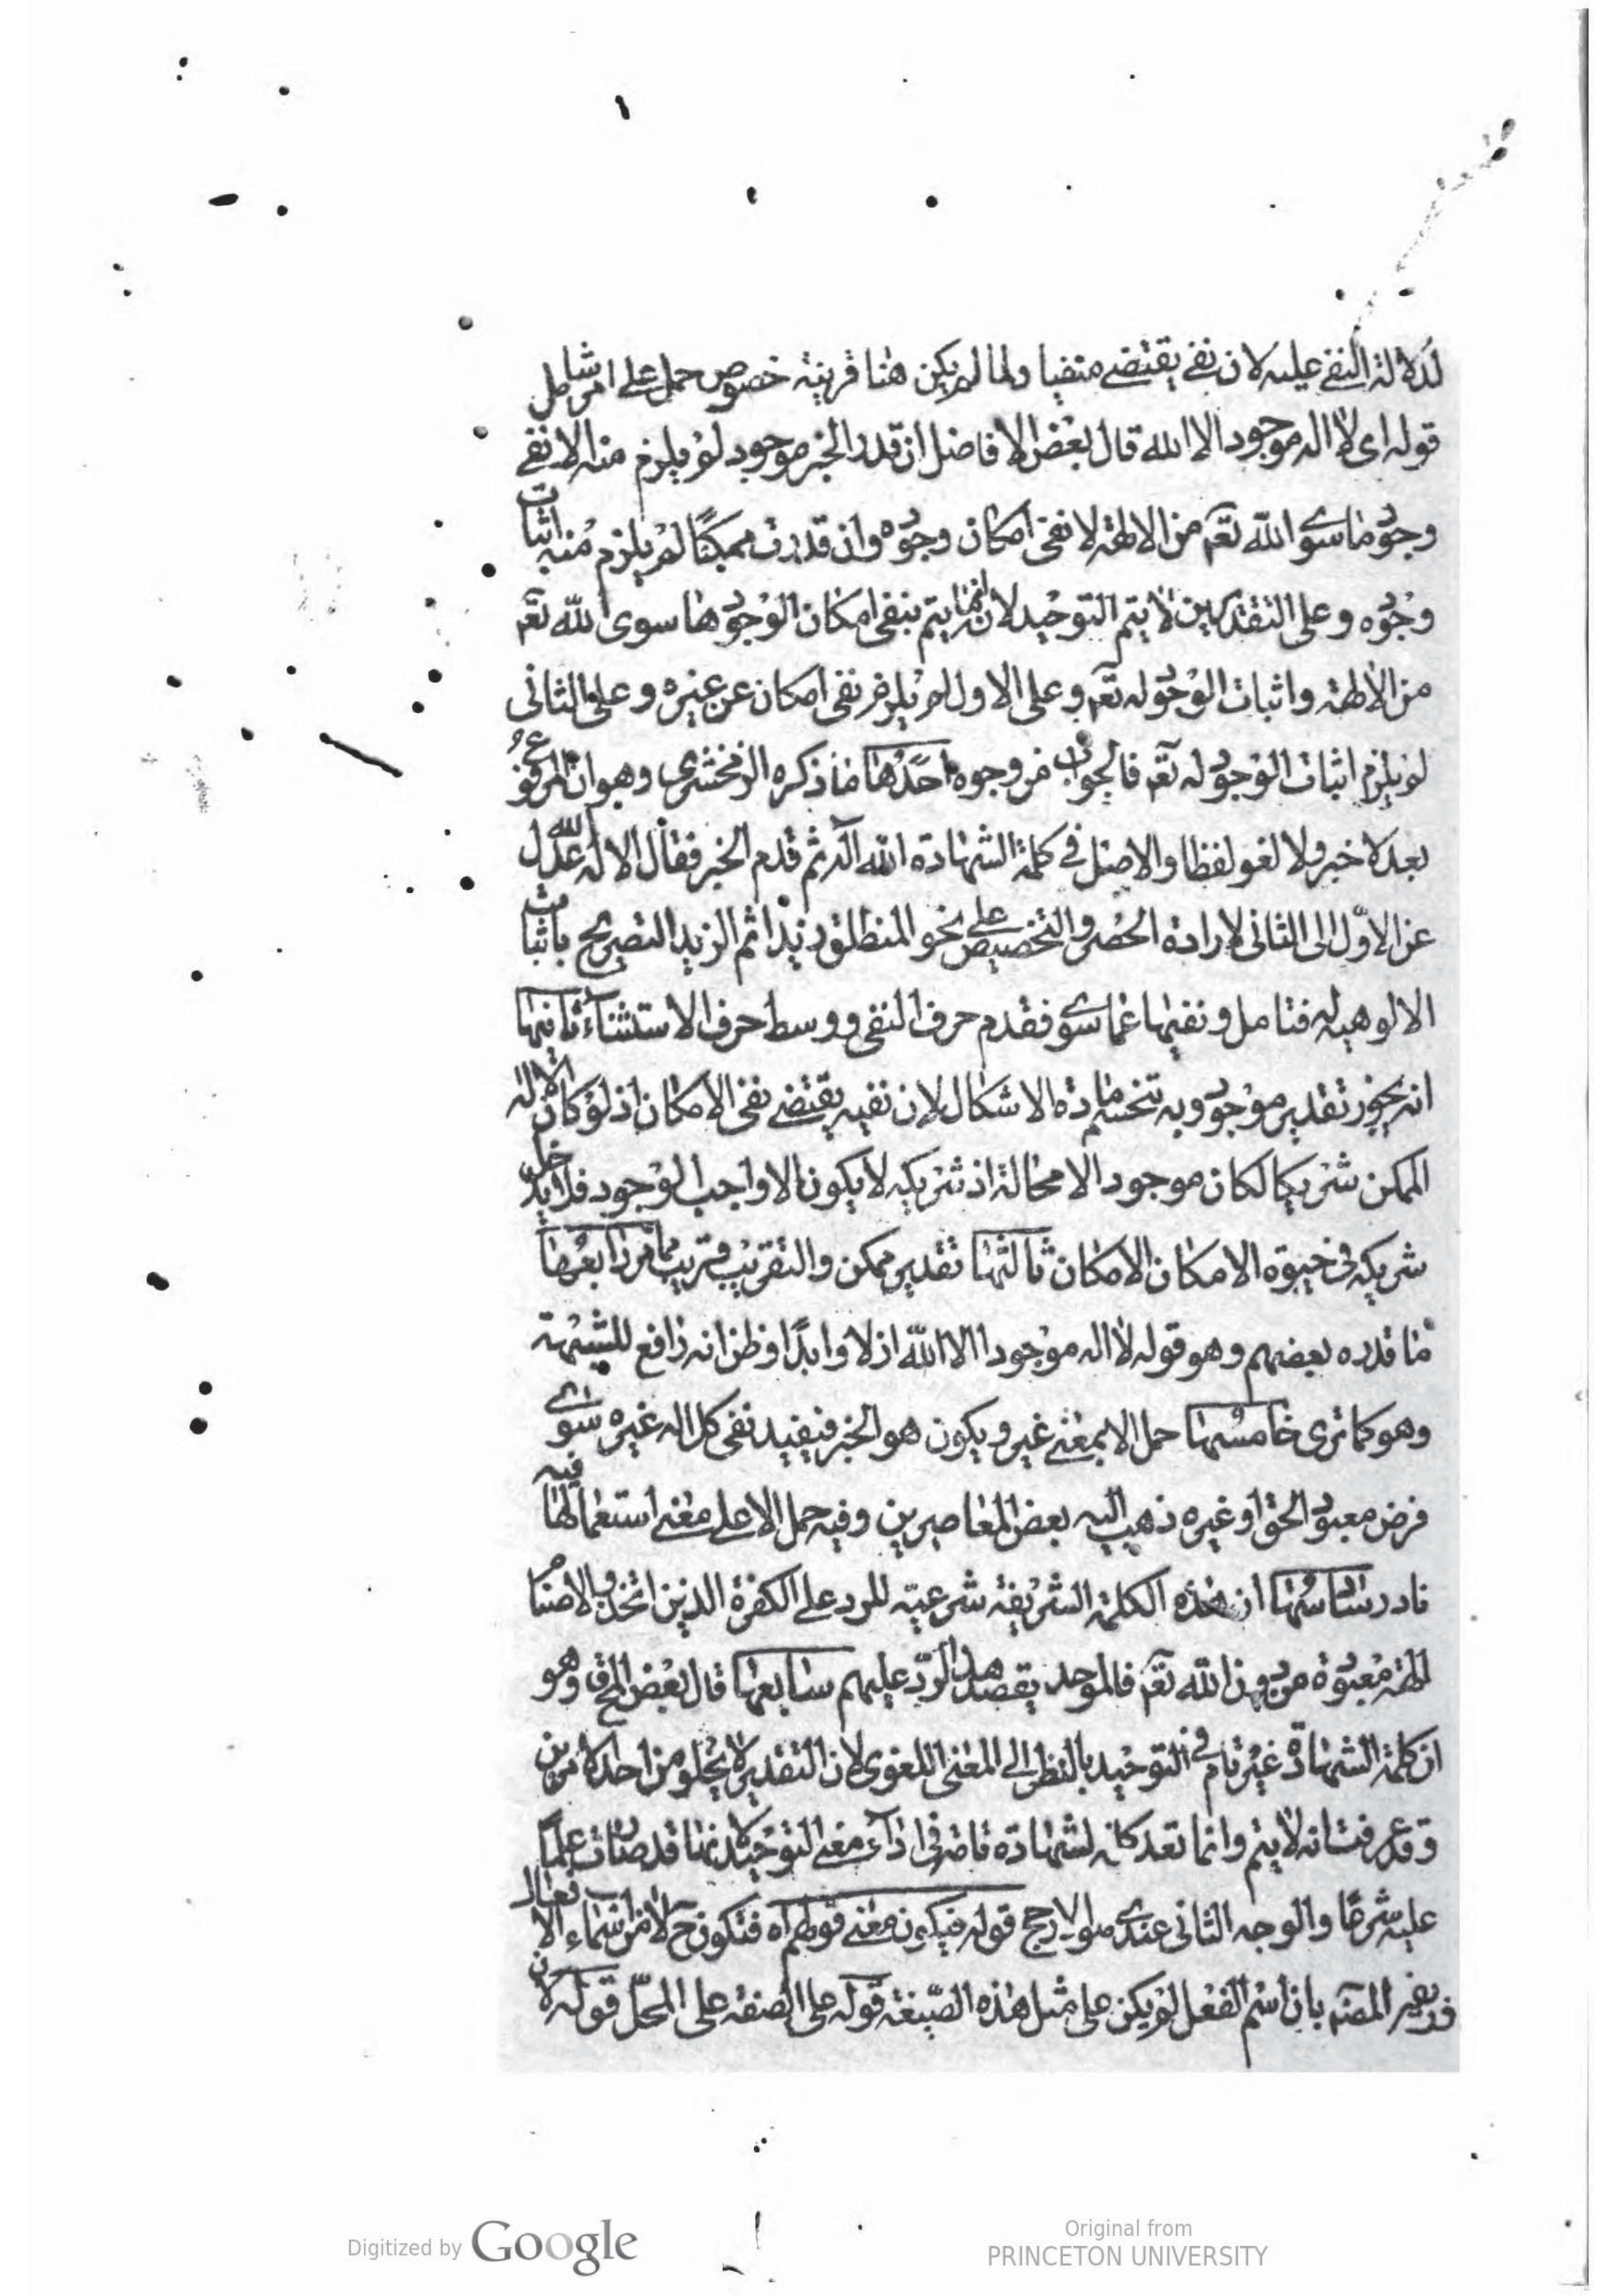 لدلالة النفي عليه لان نفي يقتضي منفيا ولما لم يكن هنا قرينة خصوص حمل على امر شامل
قوله اى لا اله موجود الا الله قال بعض الافاضل ان قدر الخبر موجود لم يلزم منه الا نفي
وجود ما سوى الله تعم من الالهة لا نفى امكان وجوده وان قدرت ممكنًا لم يلزم منه اثبات
وجوده وعلى التقديرين لا يتم التوحيد لانه انما يتم بنفى امكان الوجود عما سوى الله تعم
من الالهة واثبات الوجود له تعم وعلى الاول لم يلزم نفى امكان عن غيره وعلى الثانى
لم يلزم اثبات الوجود له تعم فالجواب من وجوه احدها ما ذكره الزمخشرى وهو ان المرفوع
بعد لا خبر ولا لغو لفظا والاصل فى كلمة الشهادة الله اله ثم قدم الخبر فقال الاله الله عدل
عن الاول الى الثانى لارادة الحصر والتخصيص على نحو المنطلق زيد ثم ازيد التصريح باثبات
الالوهية له فتامل ونفيها عما سوى فقدم حرف النفى ووسط حرف الاستثناء ثانيها
انه يجوز تقدير موجود وبه تنحسم مادة الاشكال لان نفيه يقتضى نفى الامكان اذ لو كان الاله
الممكن شريكا لكان موجود الا محالة اذ شريكه لا يكون الا واجب الوجود فلا يدخل
شريكه فى الامكان الامكان ثالثها تقدير ممكن والتقريب قريب مما مر رابعها
ما قدره بعضهم وهو قوله لا اله موجودا الا الله ازلا وابدًا وظن انه دافع للشبهة
وهو كما ترى خامسها حمل الا بمعنى غير ويكون هو الخبر فيفيد نفى كل اله غيره سوى
فرض معبود الحق او غيره ذهب اليه بعض المعاصرين وفيه حمل الا على معنى استعمالها فيه
نادر سادسها ان هذه الكلمة الشريفة شرعية للرد على الكفرة الذين اتخذوا الاصنام
الهة معبودة من دون الله تعم فالموحد يقصد هذا الرد عليهم سابعها قال بعض المحق وهو
ان كلمة الشهادة غير تام فى التوحيد بالنظر الى المعنى اللغوى لان التقدير لا يخلو من احد الامرين
وقد عرفت انه لا يتم وانما تعد كلمة لشهادة تامة فى اداء معنى التوحيد لانها قد صارت علمًا
عليه شرعًا والوجه الثانى عندى هو الارجح قوله فيكون معنى قولهم اه فتكون ح الا من اسماء الافعال
المصنف بان اسم الفعل لم يكن على مثل هذه الصيغة قوله على الصفة على المحل قوله لان
Digitized by Google
Original from
PRINCETON UNIVERSITY